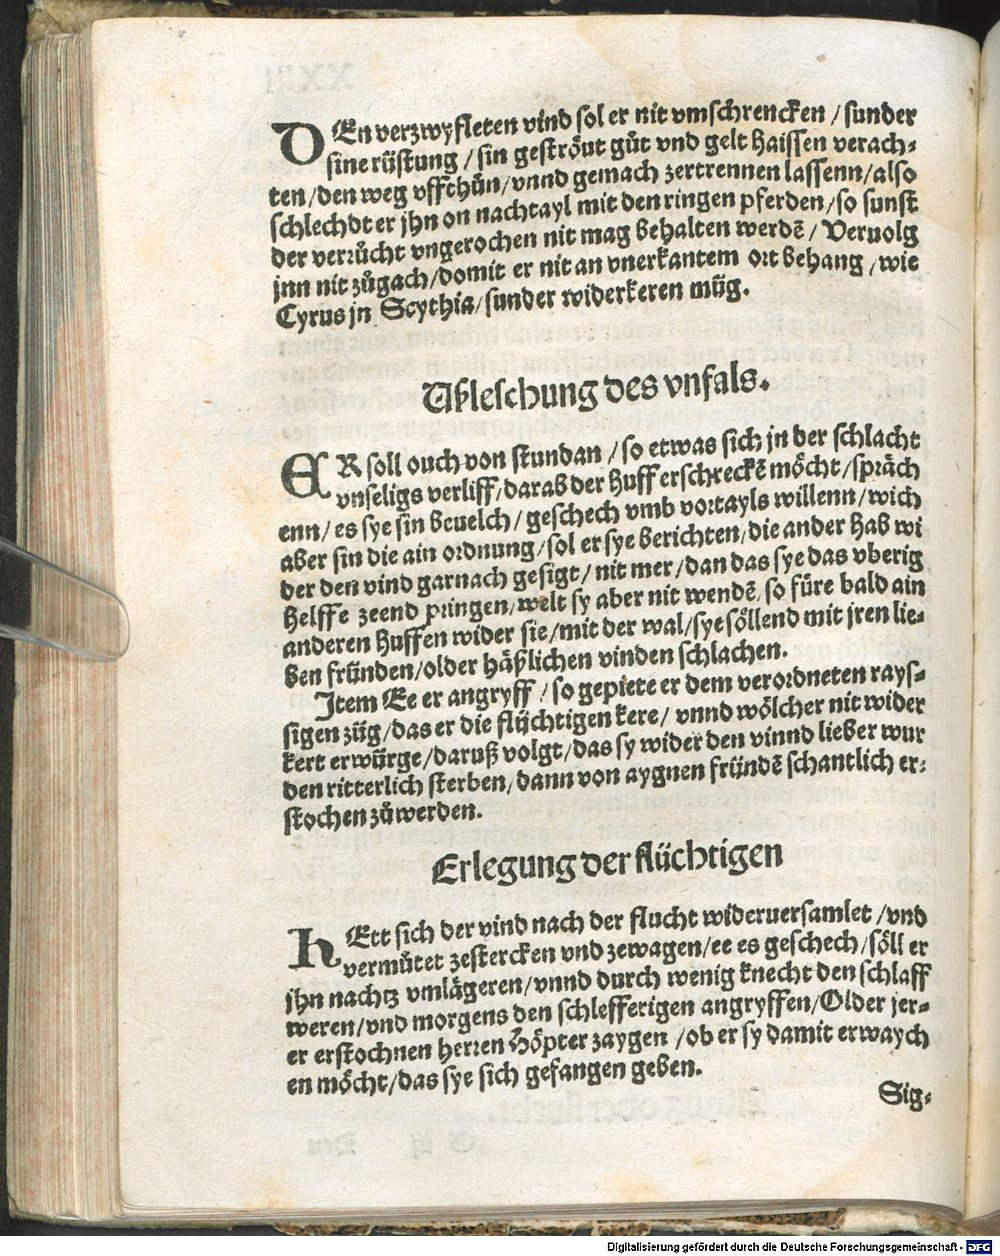 DEn verzwyfleten vind sol er nit vmschrencken / sunder
sine rüstung / sin geströut gůt vnd gelt haissen verach-
ten / den weg vffthůn / vnnd gemach zertrennen lassenn / also
schlechdt er jhn on nachtayl mit den ringen pferden / so sunst
der verrůcht vngerochen nit mag behalten werdē / Veruolg
jnn nit zůgach / domit er nit an vnerkantem ort behang / wie
Cyrus jn Scythia / sunder widerkeren můg.
Ableschung des vnfals.
ER soll ouch von stundan / so etwas sich jn der schlacht
vnseligs verliff / darab der huff erschreckē möcht / spräch
enn / es sye sin beuelch / geschech vmb vortayls willenn / wich
aber sin die ain ordnung / sol er sye berichten / die ander hab wi
der den vind garnach gesigt / nit mer / dan das sye das vberig
helffe zeend pringen / welt sy aber nit wendē / so füre bald ain
anderen huffen wider sie / mit der wal / sye söllend mit jren lie-
ben fründen / older häßlichen vinden schlachen.
Jtem Ee er angryff / so gepiete er dem verordneten rays-
sigen züg / das er die flüchtigen kere / vnnd wölcher nit wider
kert erwürge / daruß volgt / das sy wider den vinnd lieber wur
den ritterlich sterben / dann von aygnen fründē schantlich er-
stochen zů werden.
Erlegung der flüchtigen
hEtt sich der vind nach der flucht wideruersamlet / vnd
vermůtet zestercken vnd zewagen / ee es geschech / söll er
jhn nachtz vmlägeren / vnnd durch wenig knecht den schlaff
weren / vnd morgens den schlefferigen angryffen / Older jer-
er erstochnen herren höpter zaygen / ob er sy damit erwaych
en möcht / das sye sich gefangen geben.
Sig-
Digitalisierung gefördert durch die Deutsche Forschungsgemeinschaft - DFG